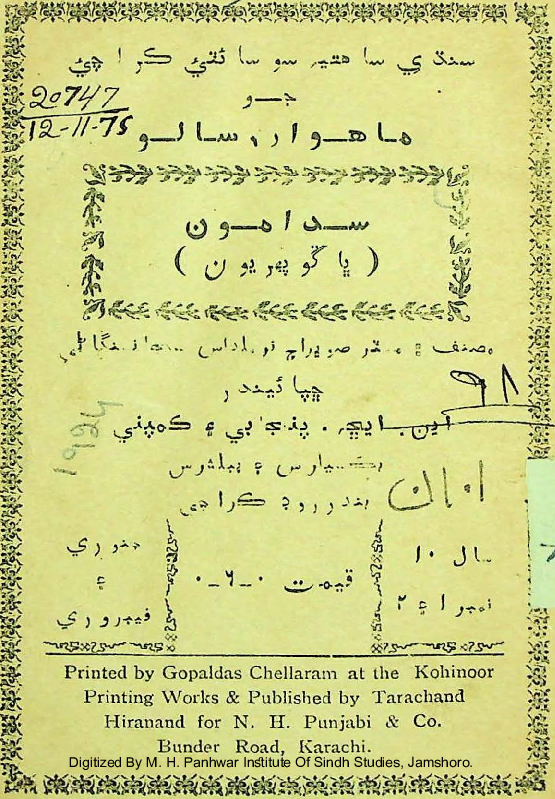 سنڌي ساهتيہ سوسائٽي ڪراچي
جو
20747
12-11-75
ماهوار رسالو
سدامون
( ڀاڱو پهريون )
مصنف ۽ مسٽر
ڇپائيندر
۹۸
اين. ايڇ. پنجابي ۽ ڪمپني
1924
بڪسيلرس ۽ پبلشرس
بندر روڊ ڪراچي
جنوري
۽
فيبروري
قيمت ۰-٦-۰
سال ۱۰
نمبر ۱ ۽ ۲
Printed by Gopaldas Chellaram at the Kohinoor
Printing Works & Published by Tarachand
Hiranand for N. H. Punjabi & Co.
Bunder Road, Karachi.
Digitized By M. H. Panhwar Institute Of Sindh Studies, Jamshoro.